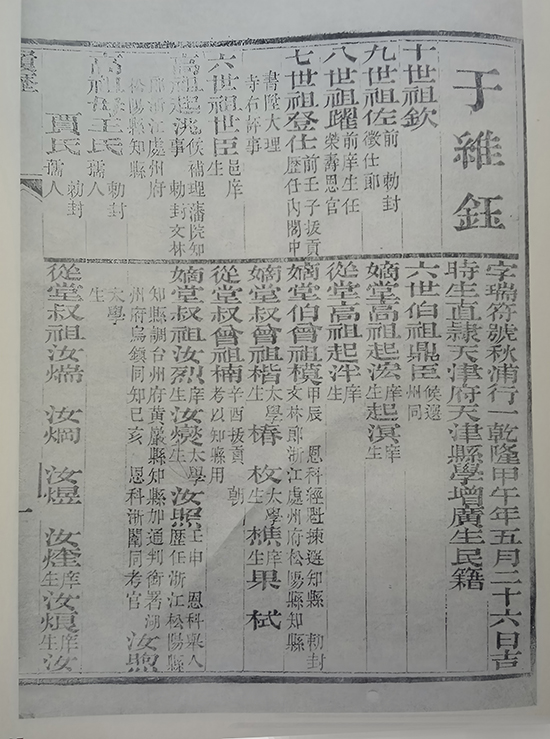 于維鈺
字瑞符號秋浦行一乾隆甲午年五月二十六日吉
時生直隸天津府天津縣學增廣生民籍
十世祖欽
九世祖佐 前勅封
徵仕郎
八世祖躍 前庠生任
榮壽恩官
七世祖登仕 前壬子拔貢
歷任內閣中
書陞大理
寺右評事
六世祖世臣 邑庠
生
高祖起洮 候補理藩院知
事勅封文林
郎浙江處州府
松陽縣知縣
高祖母王氏 勅封
孺人
賈氏 勅封
孺人
六世伯祖鼎臣 候選
州同
嫡堂高祖起浤 庠
生 起溟 庠
生
從堂高祖起泮 庠
生
嫡堂伯曾祖模 甲辰恩科經魁揀選知縣勅封
文林郎浙江處州府松陽縣知縣
嫡堂叔曾祖楷 太學
生 椿 枚 太學
生 樵 庠
生 果 栻
從堂叔曾祖楠 辛酉拔貢朝
考以知縣用
嫡堂叔祖汝烈 庠
生 汝燮 太學
生 汝照 壬申恩科舉人
歷任浙江松陽縣
知縣調台州府黃巖縣知縣加通判銜署湖
州府烏鎮同知己亥恩科浙闈同考官 汝煦
太學
生
從堂叔祖汝煓 汝烱 汝煜 汝煃 庠
生 汝熉 庠
生 汝